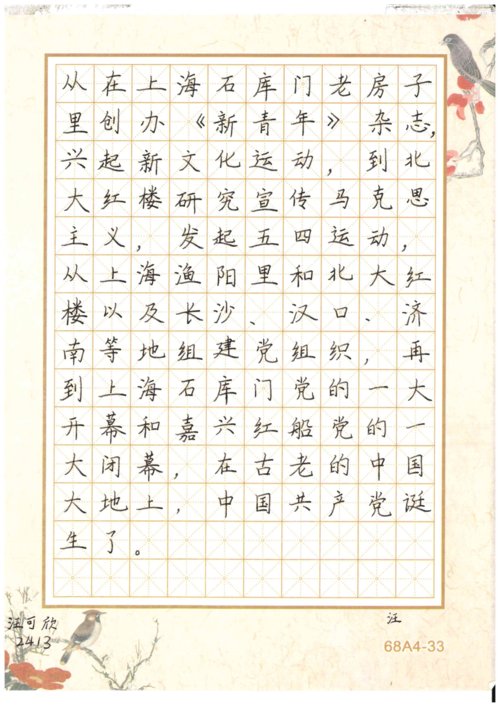 从在上海石库门老房子
里创办《新青年》杂志,
兴起新文化运动，到北
大红楼研究宣传马克思
主义，发起五四运动，
从上海渔阳里和北大红
楼以及长沙、汉口、济
南等地组建党组织，再
到上海石库门党的一大
开幕和嘉兴红船党的一
大闭幕，在古老的中国
大地上，中国共产党诞
生了。
汪可欣
2413
汪
68A4-33